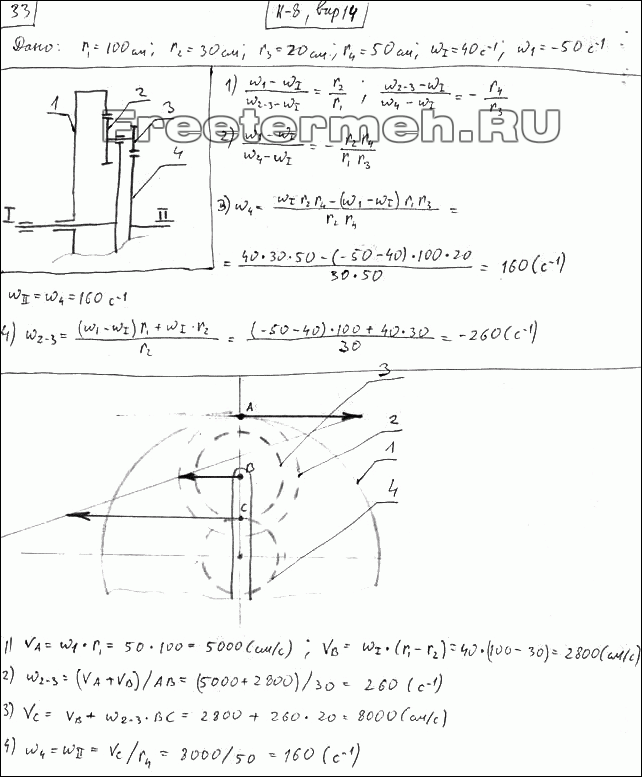 33
К-8, вар 14
Дано: r₁ = 100 см; r₂ = 30 см; r₃ = 20 см; r₄ = 50 см; ω_I = 40 с⁻¹; ω₁ = -50 с⁻¹
1 2 3 4 I II
1) (ω₁ - ω_I)/(ω₂₋₃ - ω_I) = r₂/r₁ ; (ω₂₋₃ - ω_I)/(ω₄ - ω_I) = - r₄/r₃
Freetermeh.RU
2) (ω₁ - ω_I)/(ω₄ - ω_I) = - (r₂ r₄)/(r₁ r₃)
3) ω₄ = (ω_I r₂ r₄ - (ω₁ - ω_I) r₁ r₃)/(r₂ r₄) =
= (40·30·50 - (-50-40)·100·20)/(30·50) = 160 (с⁻¹)
ω_II = ω₄ = 160 с⁻¹
4) ω₂₋₃ = ((ω₁ - ω_I) r₁ + ω_I · r₂)/r₂ = ((-50-40)·100 + 40·30)/30 = -260 (с⁻¹)
A
3
2
B
1
4
C
1) V_A = ω₁ · r₁ = 50 · 100 = 5000 (см/с) ; V_B = ω_I · (r₁ - r₂) = 40·(100-30) = 2800 (см/с)
2) ω₂₋₃ = (V_A + V_B)/AB = (5000 + 2800)/30 = 260 (с⁻¹)
3) V_C = V_B + ω₂₋₃ · BC = 2800 + 260 · 20 = 8000 (см/с)
4) ω₄ = ω_II = V_C/r₄ = 8000/50 = 160 (с⁻¹)